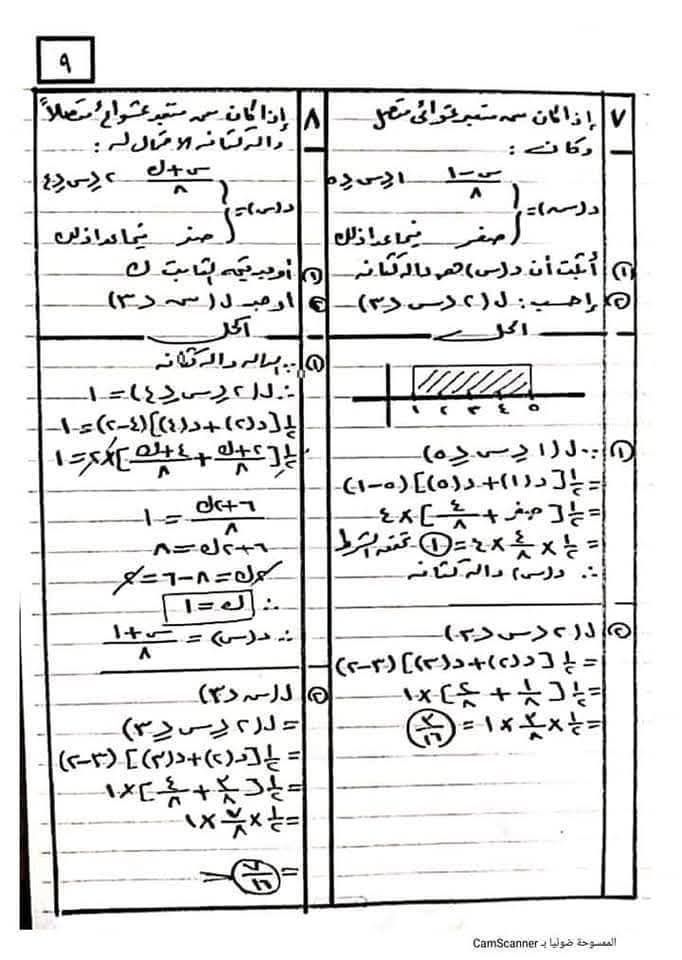 ٩
٧ إذا كان سـ متغير عشوائى متصل
وكان :
د(س)= { (س-١)/٨ ١≤س≤٥
صفر فيما عدا ذلك
① أثبت أن د(س) هى دالة كثافة
② إحسب : ل(٢<س<٣)
الحل
١ ٢ ٣ ٤ ٥
① ∵ ل(١≤س≤٥)
= ١/٢ [د(١)+د(٥)] (٥-١)
= ١/٢ [صفر + ٤/٨] × ٤
= ١/٢ × ٤/٨ × ٤ = ① تحقق الشرط
∴ د(س) دالة كثافة
② ل(٢<س<٣)
= ١/٢ [د(٢)+د(٣)] (٣-٢)
= ١/٢ [١/٨ + ٢/٨] × ١
= ١/٢ × ٣/٨ × ١ = ٣/١٦
٨ إذا كان سـ متغير عشوائى متصلاً
دالة كثافة الاحتمال له :
د(س)= { (س+ك)/٨ ٢≤س≤٤
صفر فيما عدا ذلك
① أوجد قيمة الثابت ك
② أوجد ل(سـ<٣)
الحل
① ∵ الدالة دالة كثافة
∴ ل(٢≤س≤٤) = ١
١/٢ [د(٢)+د(٤)] (٤-٢) = ١
١/٢ [(٢+ك)/٨ + (٤+ك)/٨] × ٢ = ١
(٦+٢ك)/٨ = ١
٦+٢ك = ٨
٢ك = ٨-٦ = ٢
∴ ك = ١
∴ د(س) = (س+١)/٨
② ل(س<٣)
= ل(٢≤س≤٣)
= ١/٢ [د(٢)+د(٣)] (٣-٢)
= ١/٢ [٣/٨ + ٤/٨] × ١
= ١/٢ × ٧/٨ × ١
= ٧/١٦
الممسوحة ضوئيا بـ CamScanner